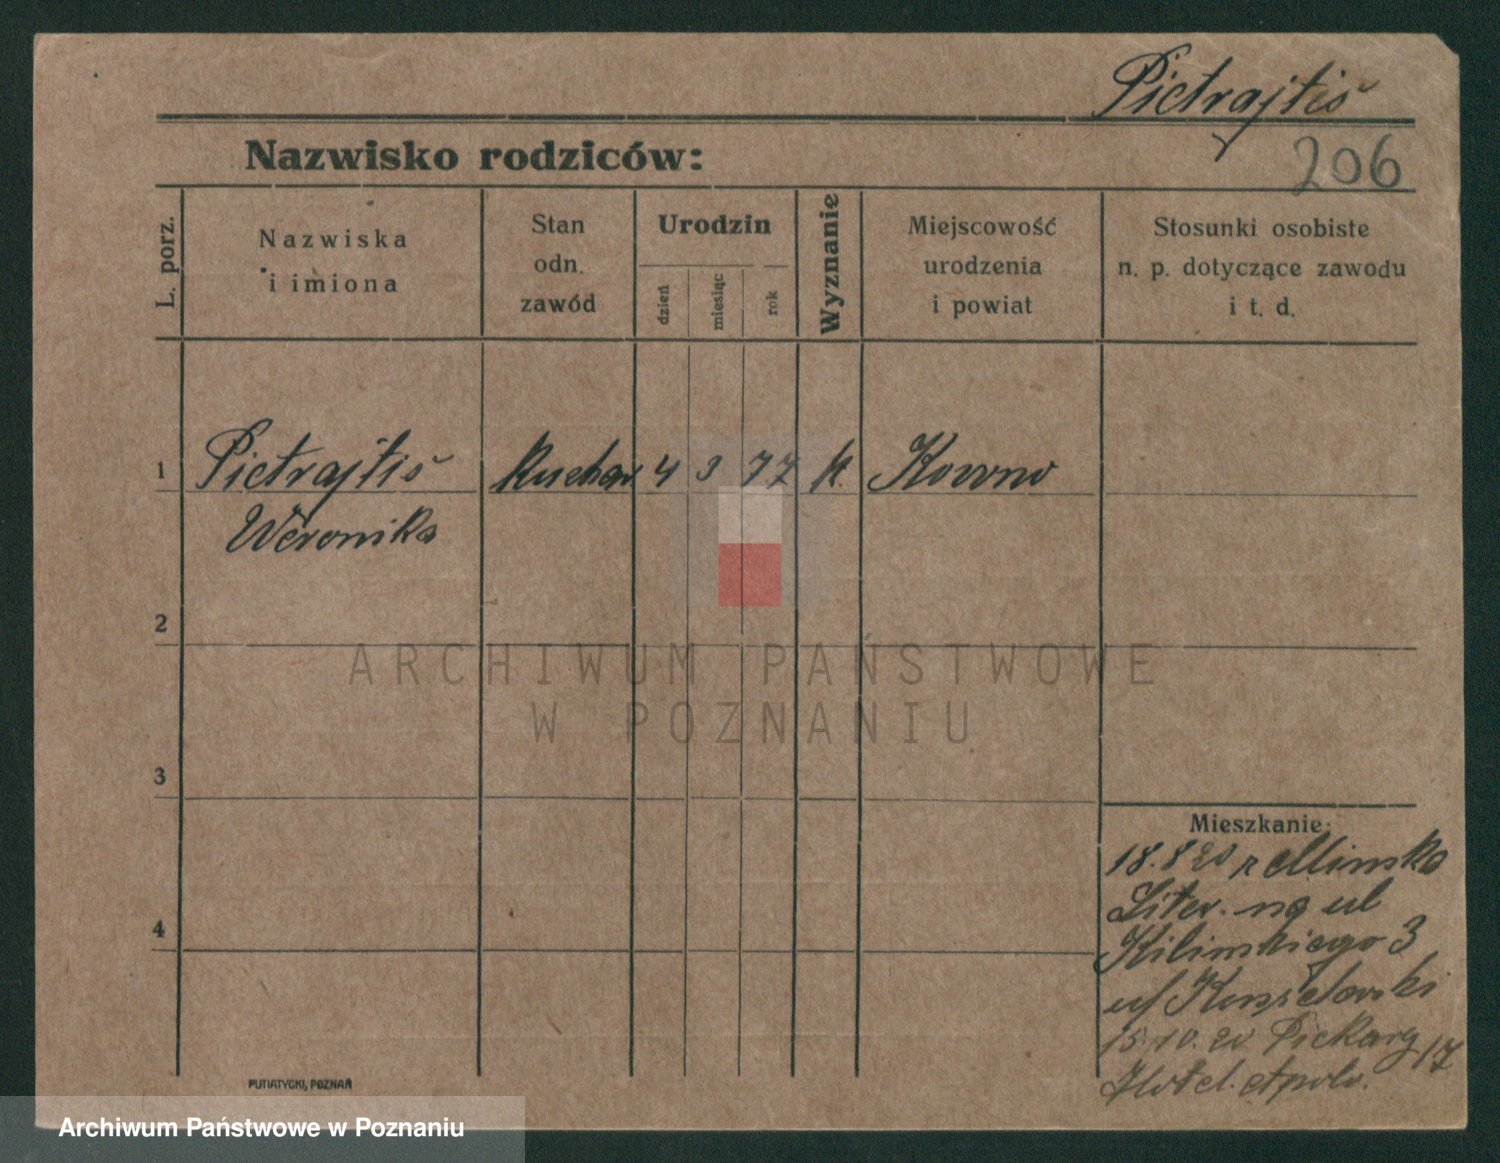 Pietrajtis
206
Nazwisko rodziców:
L. porz.
Nazwiska
i imiona
Stan
odn.
zawód
Urodzin
dzień
miesiąc
rok
Wyznanie
Miejscowość
urodzenia
i powiat
Stosunki osobiste
n. p. dotyczące zawodu
i t. d.
1 Pietrajtiš Kuchar 4 3 77 k. Kowno
Weronika
2
ARCHIWUM PAŃSTWOWE
W POZNANIU
3
Mieszkanie:
18.8 20 z Minska
Liter. na ul
4
Kilinskiego 3
ul
15.10.20 Piekary 17
Hotel Apolo.
PUTIATYCKI, POZNAŃ
Archiwum Państwowe w Poznaniu